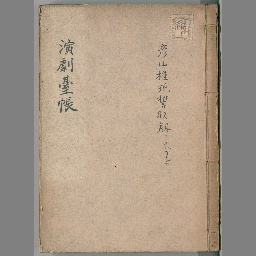 彦山権現誓助劔
演劇臺帳